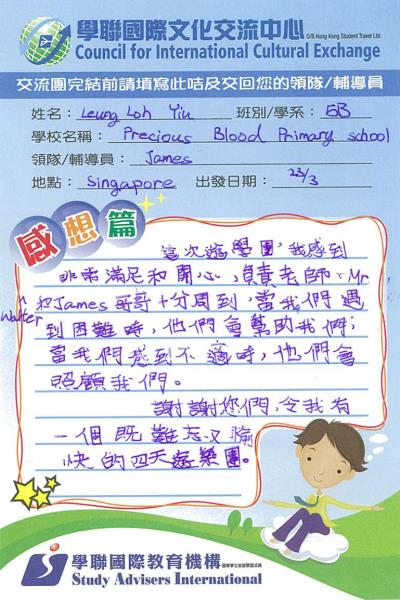 學聯國際文化交流中心 O/B Hong Kong Student Travel Ltd.
Council for International Cultural Exchange
交流團完結前請填寫此咭及交回您的領隊/輔導員
姓名：Leung Loh Yiu 班別/學系：5B
學校名稱：Precious Blood Primary school
領隊/輔導員：James
地點：Singapore 出發日期：23/3
感想篇
這次遊學團，我感到
非常滿足和開心，負責老師、Mr
Walter 和James哥哥十分周到，當我們遇
到困難時，他們會幫助我們；
當我們感到不適時，他們會
照顧我們。
謝謝您們，令我有
一個既難忘又愉
快的四天遊樂團。
學聯國際教育機構
Study Advisers International